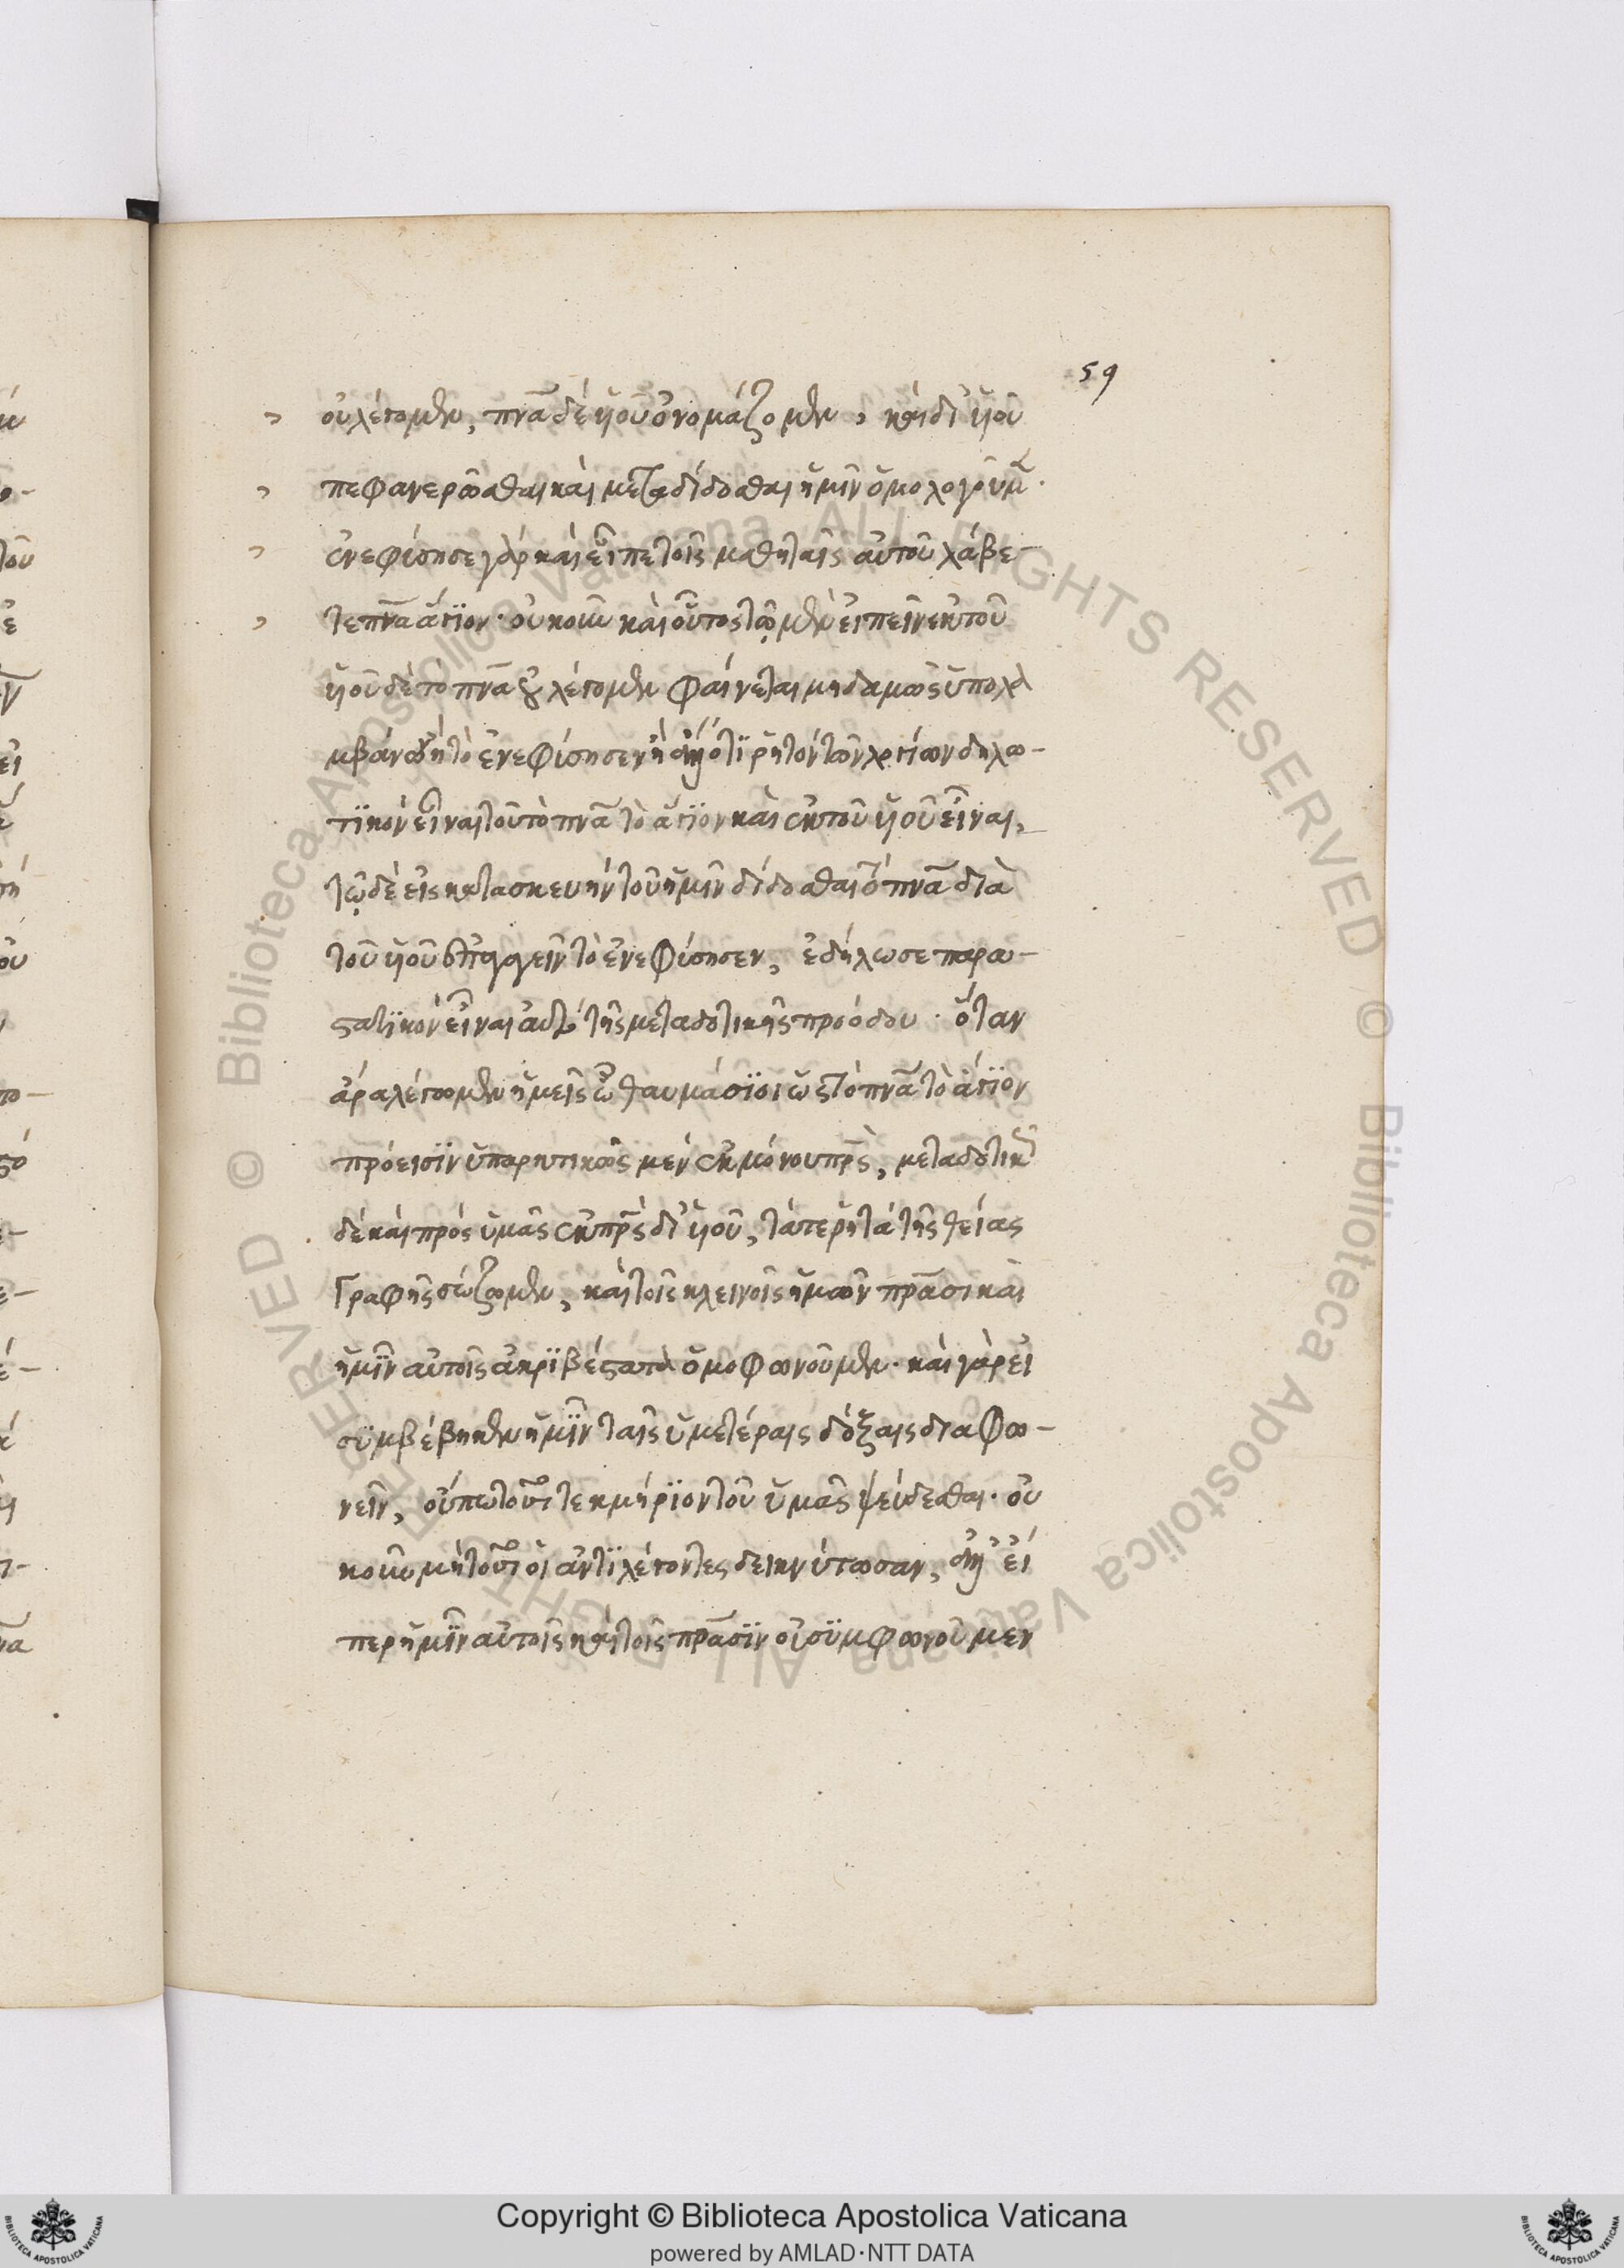 59
οὐ λέγομεν, πνᾶ δὲ ὑοῦ ὀνομάζομεν, καὶ δι' ὑοῦ
πεφανερῶσθαι καὶ μεταδίδοσθαι ἡμῖν ὁμολογοῦμ·
ἐνεφύσησε γὰρ καὶ εἶπε τοῖς μαθηταῖς αὐτοῦ λάβε-
τε πνᾶ ἅγιον· οὐκοῦν καὶ οὗτος τῷ μὲν εἰπεῖν ἐκ τοῦ
ὑοῦ δὲ τὸ πνᾶ οὐ λέγομεν φαίνεται μηδαμῶς ὑπολα
μβάνων τὸ ἐνεφύσησεν ἢ ἄλλό τι ῥητὸν τῶν λογίων δηλω-
τικὸν εἶναι τοῦ τὸ πνᾶ τὸ ἅγιον καὶ ἐκ τοῦ ὑοῦ εἶναι,
τῷ δὲ εἰς κατασκευὴν τοῦ ἡμῖν δίδοσθαι τὸ πνᾶ διὰ
τοῦ ὑοῦ ἐπαγαγεῖν τὸ ἐνεφύσησεν, ἐδήλωσε παρα-
στατικὸν εἶναι αὐτὸ τῆς μεταδοτικῆς προόδου· ὅταν
ἄρα λέγωμεν ἡμεῖς ὦ θαυμάσιοι ὡς τὸ πνᾶ τὸ ἅγιον
πρόεισιν ὑπαρκτικῶς μὲν ἐκ μόνου πρς, μεταδοτικ
δὲ καὶ πρὸς ὑμᾶς ἐκ πρς δι' ὑοῦ, τά τε ῥητὰ τῆς θείας
Γραφῆς σώζομεν, καὶ τοῖς κλεινοῖς ἡμῶν πράσι καὶ
ἡμῖν αὐτοῖς ἀκριβέστατα ὁμοφωνοῦμεν· καὶ γὰρ εἰ
συμβέβηκεν ἡμῖν ταῖς ὑμετέραις δόξαις διαφω-
νεῖν, οὔπω τοῦτο τεκμήριον τοῦ ὑμᾶς ψεύδεσθαι· οὐ
κοῦν μὴ τοῦτο οἱ ἀντιλέγοντες δεικνύτωσαν, ἀλλ' εἴ
περ ἡμῖν αὐτοῖς καὶ τοῖς πράσιν οὐ συμφωνοῦμεν
Copyright © Biblioteca Apostolica Vaticana
powered by AMLAD·NTT DATA